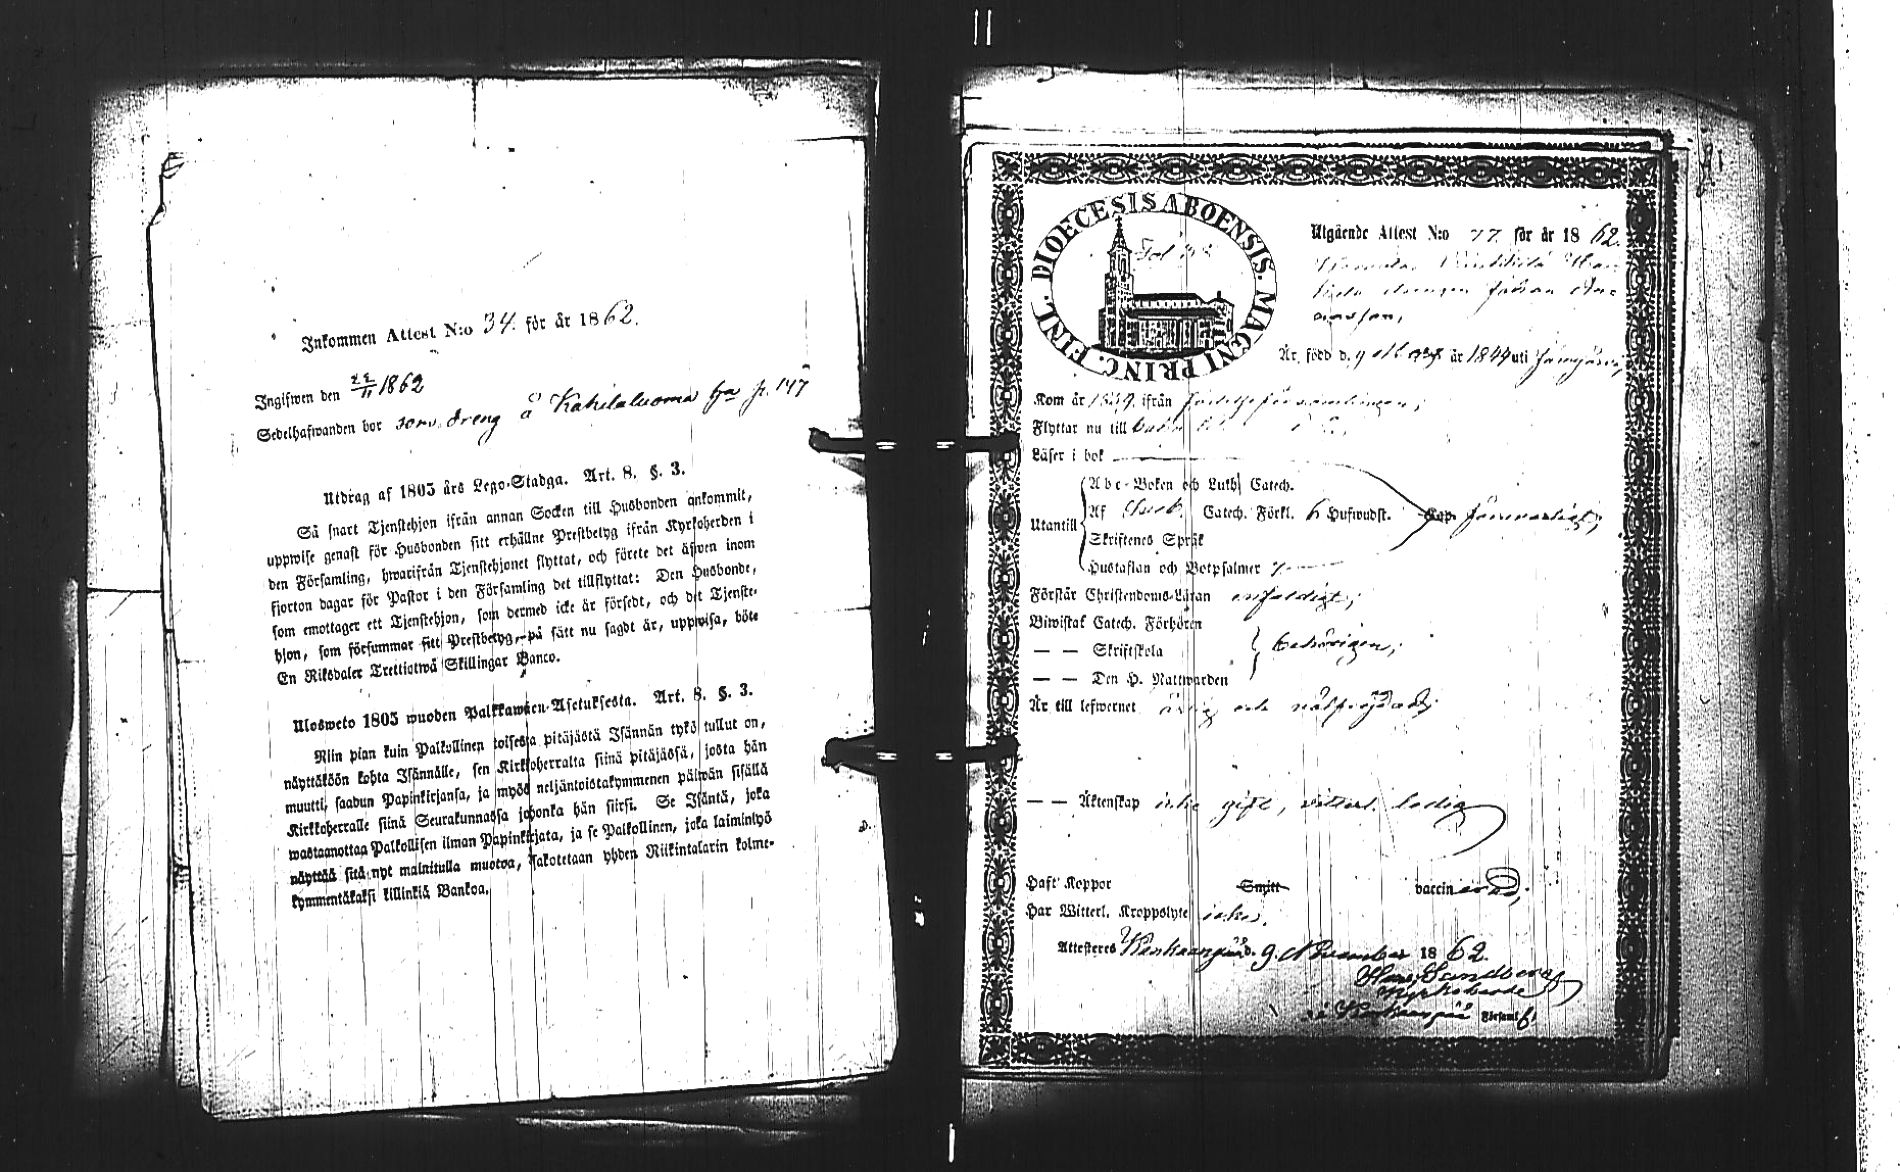 Inkommen Attest N:o 34. för år 1862.
Ingifwen den 22/11 1862
Sedelhafwanden bor som dreng å Kahilaluoma bya p. 147
Utdrag af 1805 års Lego-Stadga. Art. 8. §. 3.
Så snart Tjenstehjon ifrån annan Socken till Husbonden ankommit,
uppwise genast för Husbonden sitt erhållne Prestbetyg ifrån Kyrkoherden i
den Församling, hwarifrån Tjenstehjonet flyttat, och förete det äfwen inom
fjorton dagar för Pastor i den Församling det tillflyttat: Den Husbonde,
som emottager ett Tjenstehjon, som dermed icke är försedt, och det Tjenste-
hjon, som försummar sitt Prestbetyg, på sätt nu sagdt är, uppwisa, böte
En Riksdaler Trettiotwå Skillingar Banco.
Ulosweto 1805 wuoden Palkkawäen-Asetuksesta. Art. 8. §. 3.
Niin pian kuin Palkollinen toisesta pitäjästä Isännän tykö tullut on,
näyttäköön kohta Isännälle, sen Kirkkoherralta siinä pitäjässä, josta hän
muutti, saadun Papinkirjansa, ja myös neljäntoistakymmenen päiwän sisällä
Kirkkoherralle siinä Seurakunnassa johonka hän siirsi. Se Isäntä, joka
wastaanottaa Palkollisen ilman Papinkirjata, ja se Palkollinen, joka laiminlyö
näyttää sitä nyt mainitulla muotoa, sakotetaan yhden Riikintalarin kolme-
kymmentäkaksi killinkiä Bankoa.
DIOECESIS ABOENSIS. MAGNI PRINC. FINL.
Utgående Attest N:o 77 för år 1862.
drengen Johan
Är, född d. 9 Mars år 1844 uti Jämijärvi,
Kom år 1859 ifrån födelseförsamlingen;
Flyttar nu till
Läser i bok
Utantill
Abc-Boken och Luth Catech.
Af Sveb. Catech. Förkl. 6 Hufwudst. Cap. försvarligt;
Skriftenes Språk
Hustaflan och Botpsalmer
Förstår Christendoms-Läran enfaldigt;
Biwistat Catech. Förhören
— — Skriftskola behörigen;
— — Den H. Nattwarden
Är till lefwernet ärlig och välfrejdad;
— — Äktenskap icke gift, vitterl. ledig
Haft Koppor Smitt vaccinerad;
Har Witterl. Kroppslyte icke.
Attesteres Kankaanpää d. 9 November 1862.
Sandberg
Kyrkoherde
i Kankaanpää Församl.